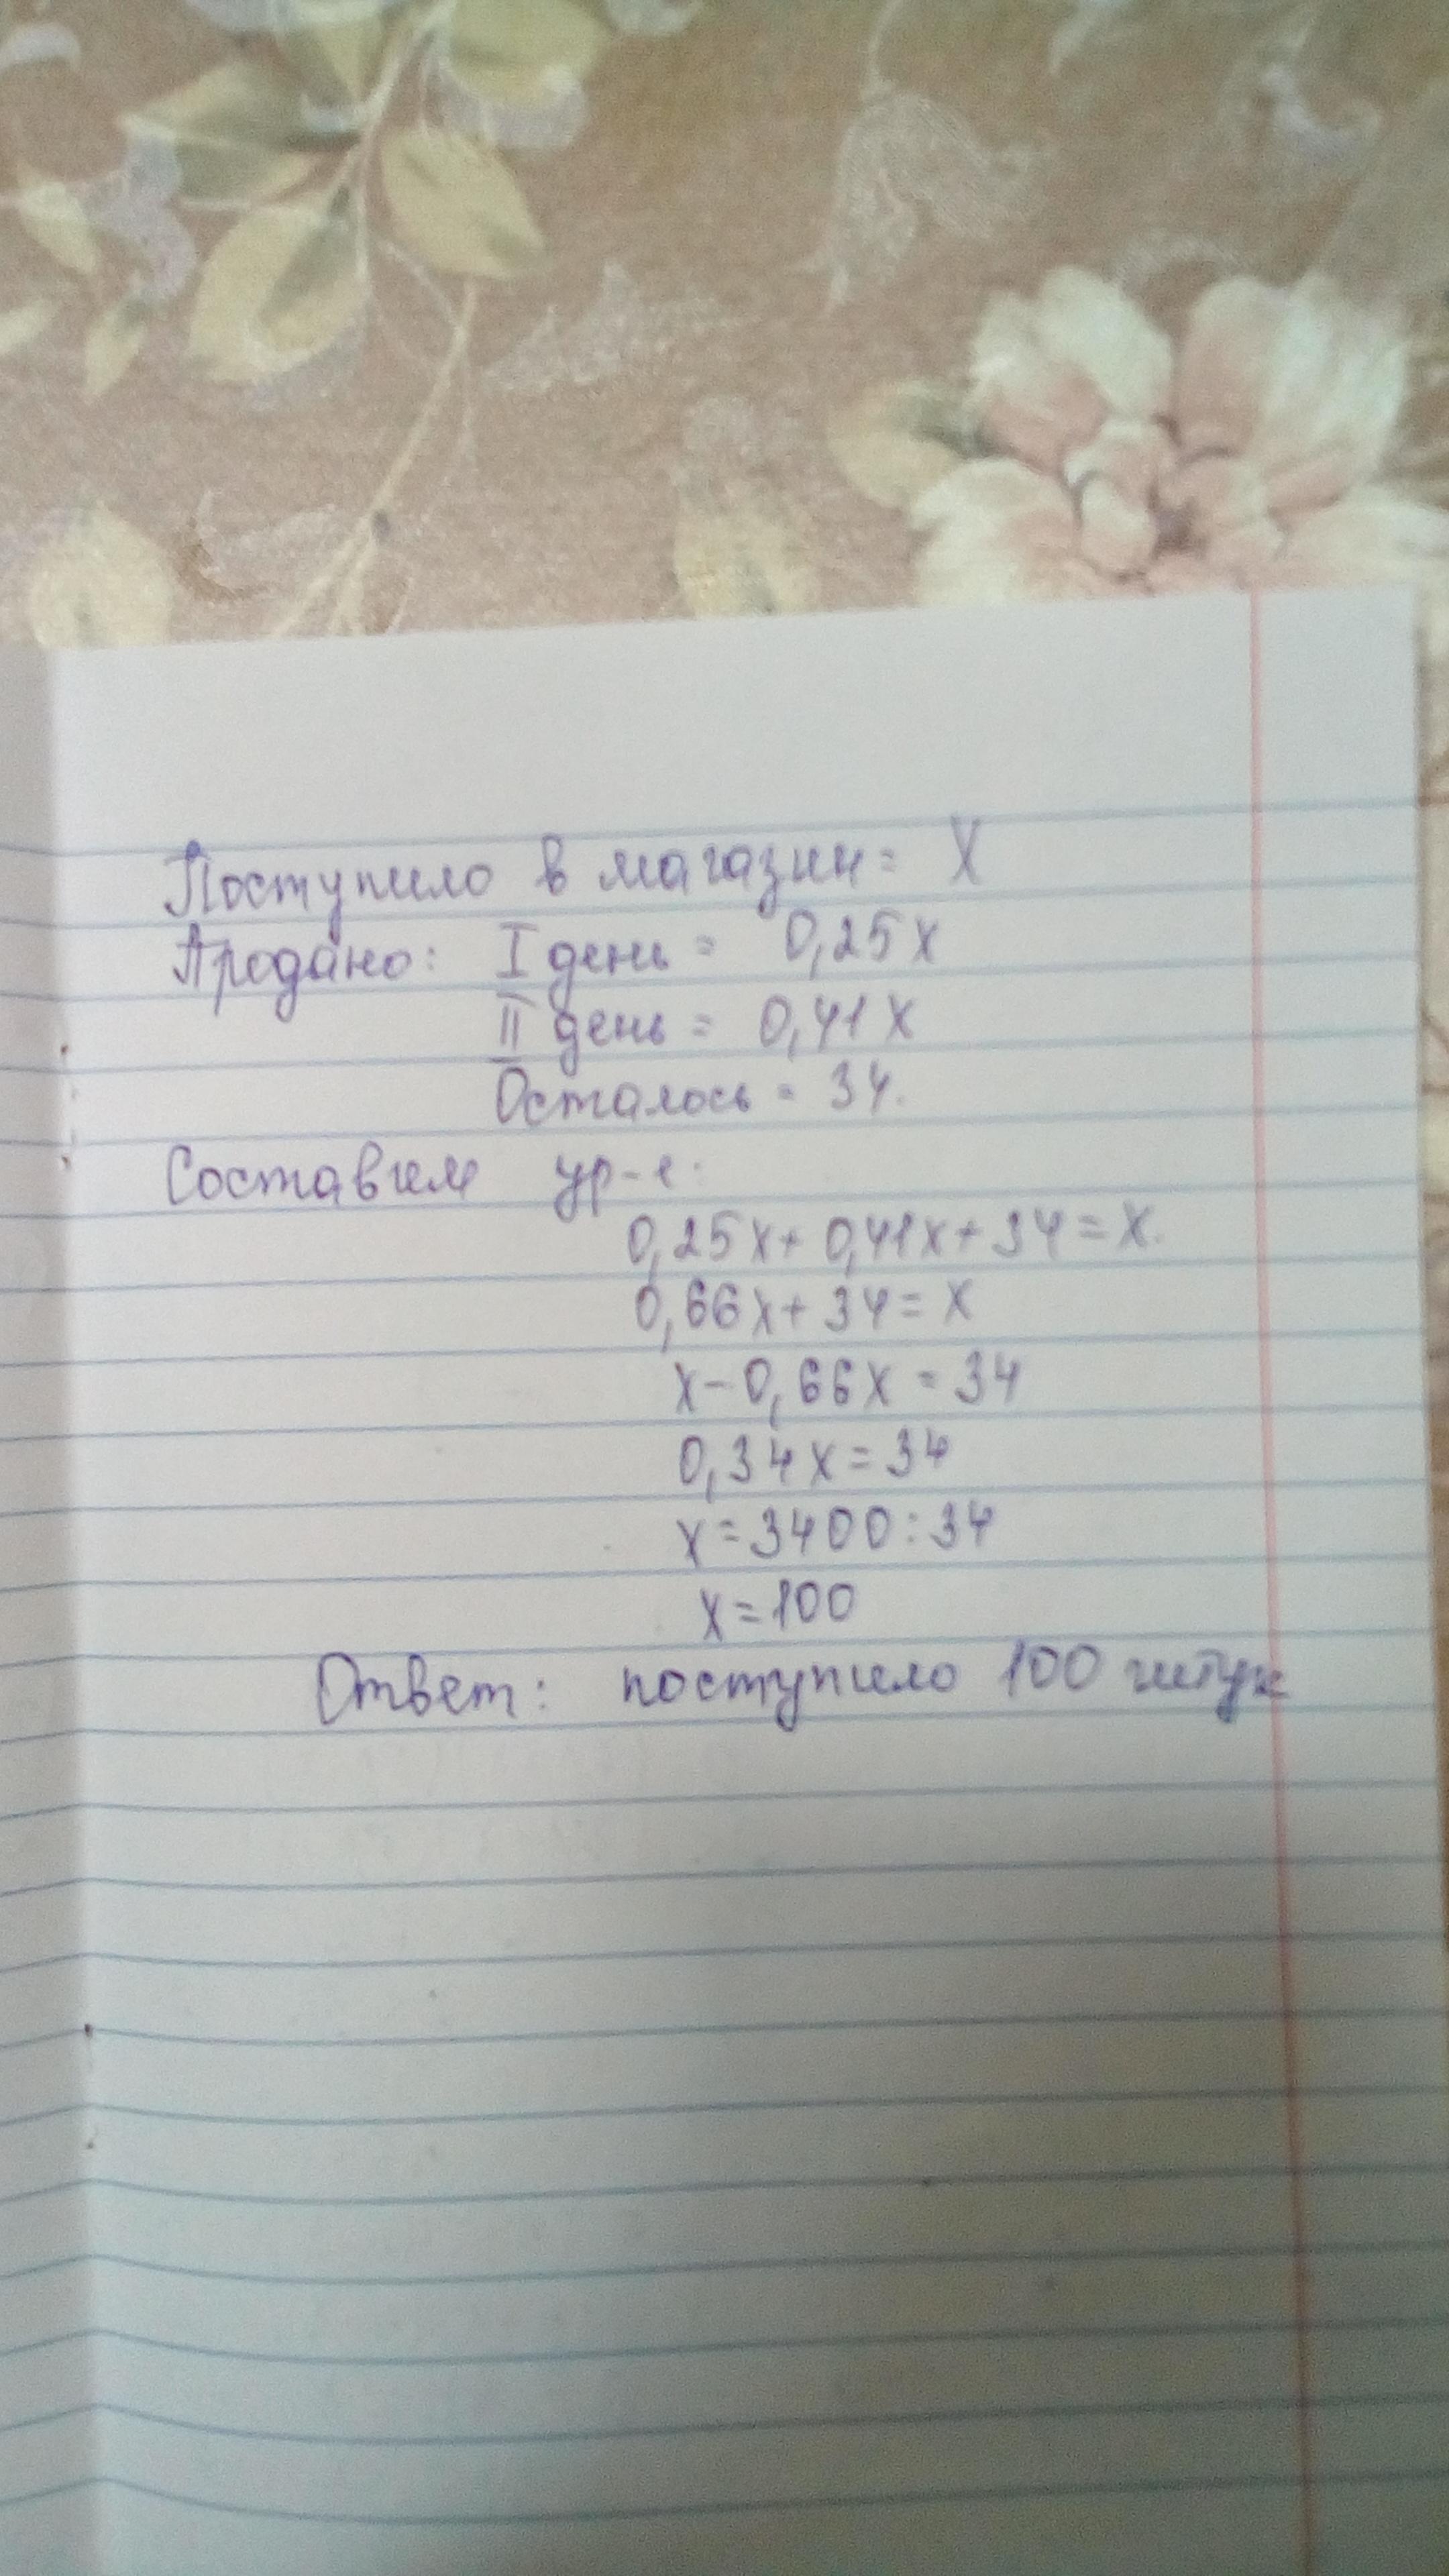 Поступило в магазин = X
Продано: I день = 0,25x
II день = 0,41x
Осталось = 34.
Составим ур-е:
0,25x + 0,41x + 34 = x.
0,66x + 34 = x
x - 0,66x = 34
0,34x = 34
x = 3400 : 34
x = 100
Ответ: поступило 100 штук